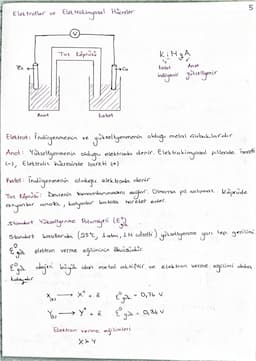 Elektrotlar ve Elektrokimyasal Hücreler
5
V
Tuz Köprüsü
Zn
Cu
Anot
Katot
KiMyA
Katot Anot
indirgenir yükseltgenir
Elektrot: İndirgenmenin ve yükseltgenmenin olduğu metal çubuklardır
Anot: Yükseltgenmenin olduğu elektroda denir. Elektrokimyasal pillerde işareti
(-), Elektroliz hücresinde işareti (+)
Katot: İndirgenmenin olduğu elektroda denir
Tuz Köprüsü: Devrenin tamamlanmasını sağlar. Olmazsa pil çalışmaz. Köprüde
anyonlar anoda, katyonlar katoda hareket eder.
Standart Yükseltgenme Potansiyeli (E°)
Standart koşullarda (25°C, 1 atm, 1M çözelti) yükseltgenme yarı tep. gerilimi
E°yük elektron verme eğiliminin ölçüsüdür
E°yük değeri büyük olan metal aktiftir ve elektron verme eğilimi daha
X(k) → X⁺ + ē E°yük = 0,76 V
Y(k) → Y⁺ + ē E°yük = 0,34 V
Elektron verme eğilimleri
X > Y